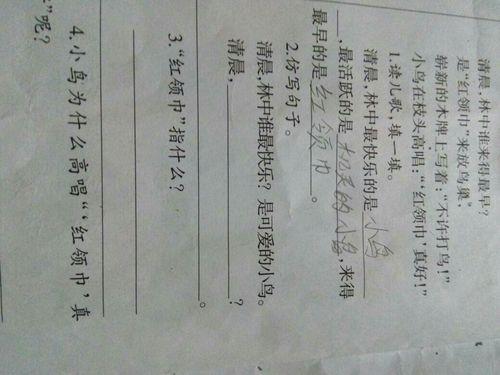 清晨,林中谁来得最早?
是“红领巾”来放鸟巢。
崭新的木牌上写着:“不许打鸟!”
小鸟在枝头高唱:“‘红领巾’真好!”
1.读儿歌,填一填。
清晨,林中最快乐的是小鸟
,最活跃的是可爱的小鸟,来得
最早的是红领巾。
2.仿写句子。
清晨,林中谁最快乐?是可爱的小鸟。
清晨,?
。
3.“红领巾”指什么?
4.小鸟为什么高唱“‘红领巾’真
”呢?